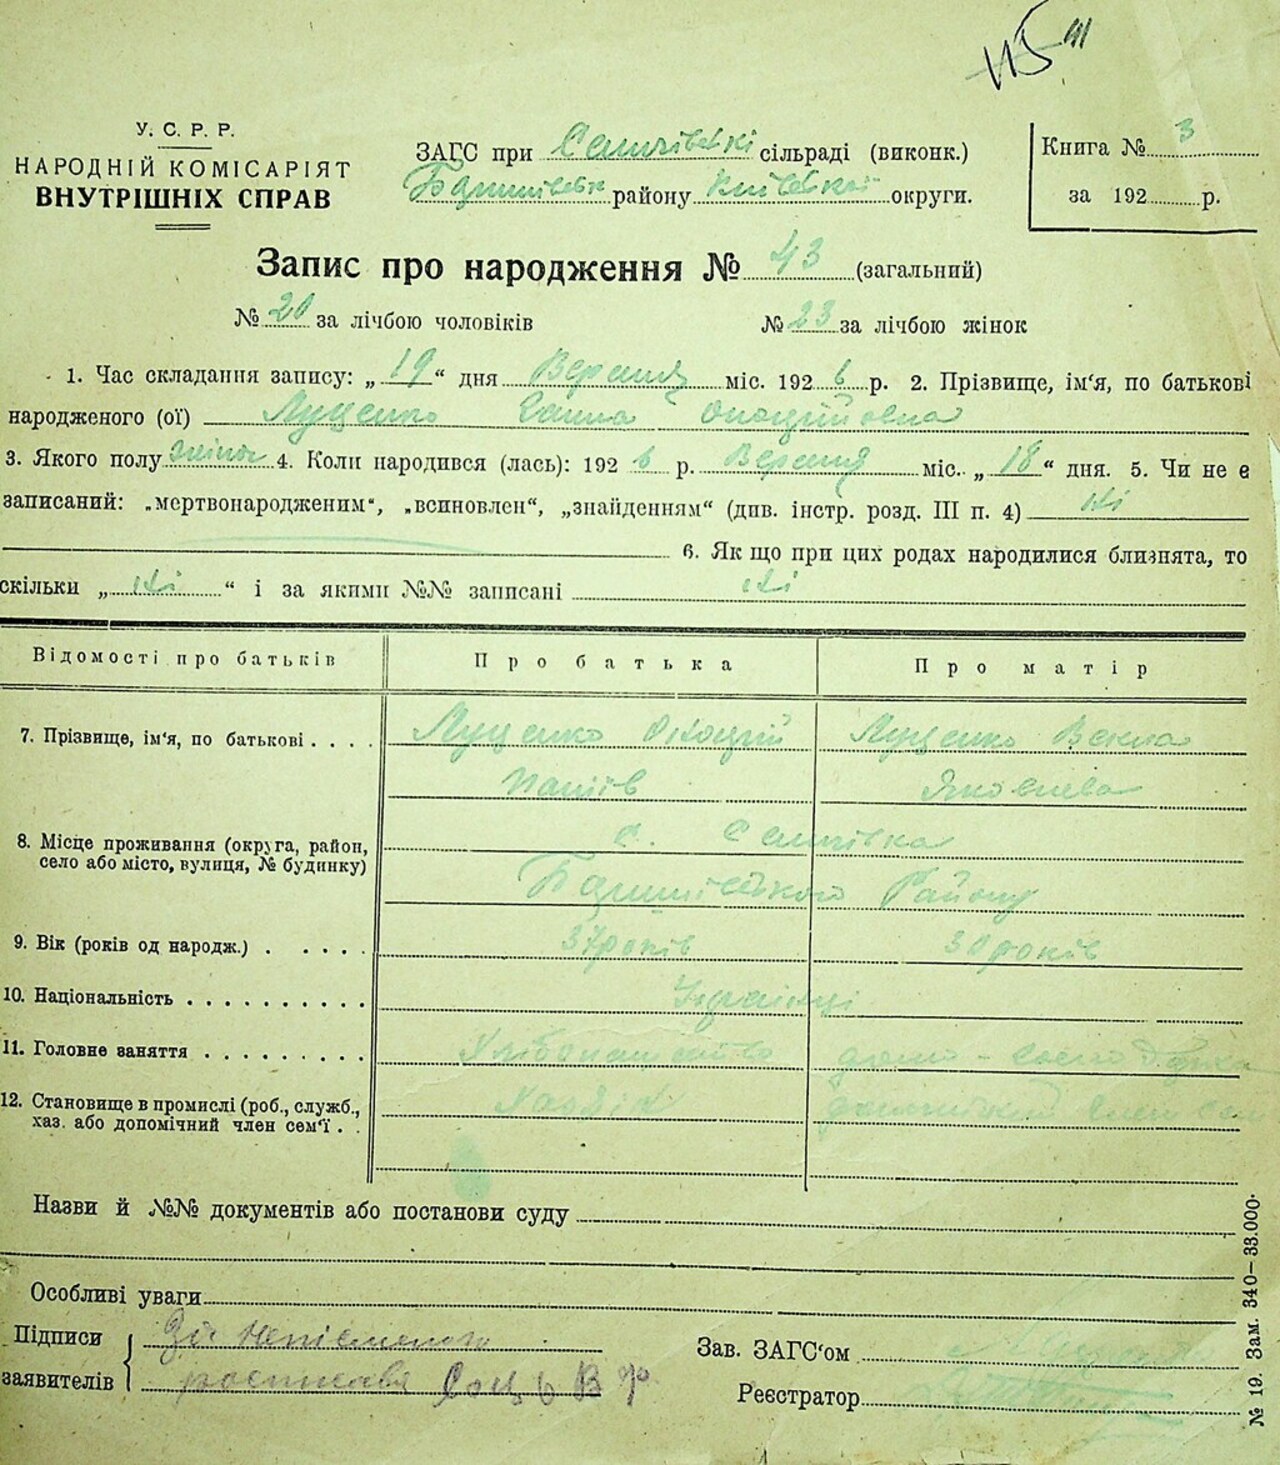 115
У. С. Р. Р.
НАРОДНІЙ КОМІСАРІЯТ
ВНУТРІШНІХ СПРАВ
ЗАГС при сільраді (виконк.)
району Київської округи.
Книга № 3
за 192 р.
Запис про народження № 43 (загальний)
№ 20 за лічбою чоловіків № 23 за лічбою жінок
1. Час складання запису: „ 19 “ дня Вересня міс. 192 6 р. 2. Прізвище, ім'я, по батькові
народженого (ої) Луценко Ганна
3. Якого полу жіноч 4. Коли народився (лась): 192 6 р. Вересня міс. „ 18 “ дня. 5. Чи не є
записаний: „мертвонародженим“, „всиновлен“, „знайденням“ (див. інстр. розд. III п. 4) Ні
6. Як що при цих родах народилися близнята, то
скільки „ Ні “ і за якими №№ записані Ні
Відомості про батьків Про батька Про матір
7. Прізвище, ім'я, по батькові . . . . Луценко Луценко Векла
Яковлева
8. Місце проживання (округа, район,
село або місто, вулиця, № будинку)
с.
Району
9. Вік (років од народж.) . . . . . 37 років 30 років
10. Національність . . . . . . . . . . Українці
11. Головне заняття . . . . . . . . . Хлібопашество
12. Становище в промислі (роб., служб.,
хаз. або допомічний член сем'ї . . Хазяїн
Назви й №№ документів або постанови суду
Особливі уваги
Підписи За
заявителів
Зав. ЗАГС'ом
Реєстратор
№ 19. Зам. 340—33.000.